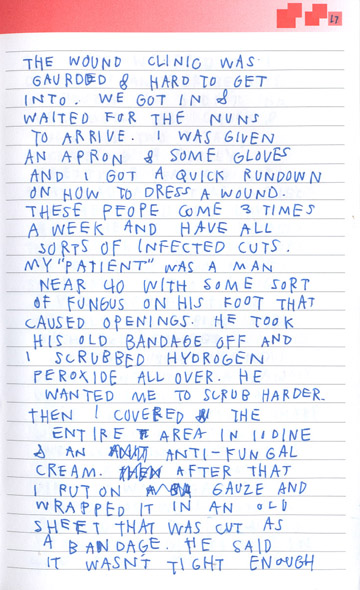 27
THE WOUND CLINIC WAS
GAURDED & HARD TO GET
INTO. WE GOT IN &
WAITED FOR THE NUNS
TO ARRIVE. I WAS GIVEN
AN APRON & SOME GLOVES
AND I GOT A QUICK RUNDOWN
ON HOW TO DRESS A WOUND.
THESE PEOPE COME 3 TIMES
A WEEK AND HAVE ALL
SORTS OF INFECTED CUTS.
MY "PATIENT" WAS A MAN
NEAR 40 WITH SOME SORT
OF FUNGUS ON HIS FOOT THAT
CAUSED OPENINGS. HE TOOK
HIS OLD BANDAGE OFF AND
I SCRUBBED HYDROGEN
PEROXIDE ALL OVER. HE
WANTED ME TO SCRUB HARDER.
THEN I COVERED THE
ENTIRE AREA IN IODINE
& AN ANTI-FUNGAL
CREAM. AFTER THAT
I PUT ON GAUZE AND
WRAPPED IT IN AN OLD
SHEET THAT WAS CUT AS
A BANDAGE. HE SAID
IT WASN'T TIGHT ENOUGH